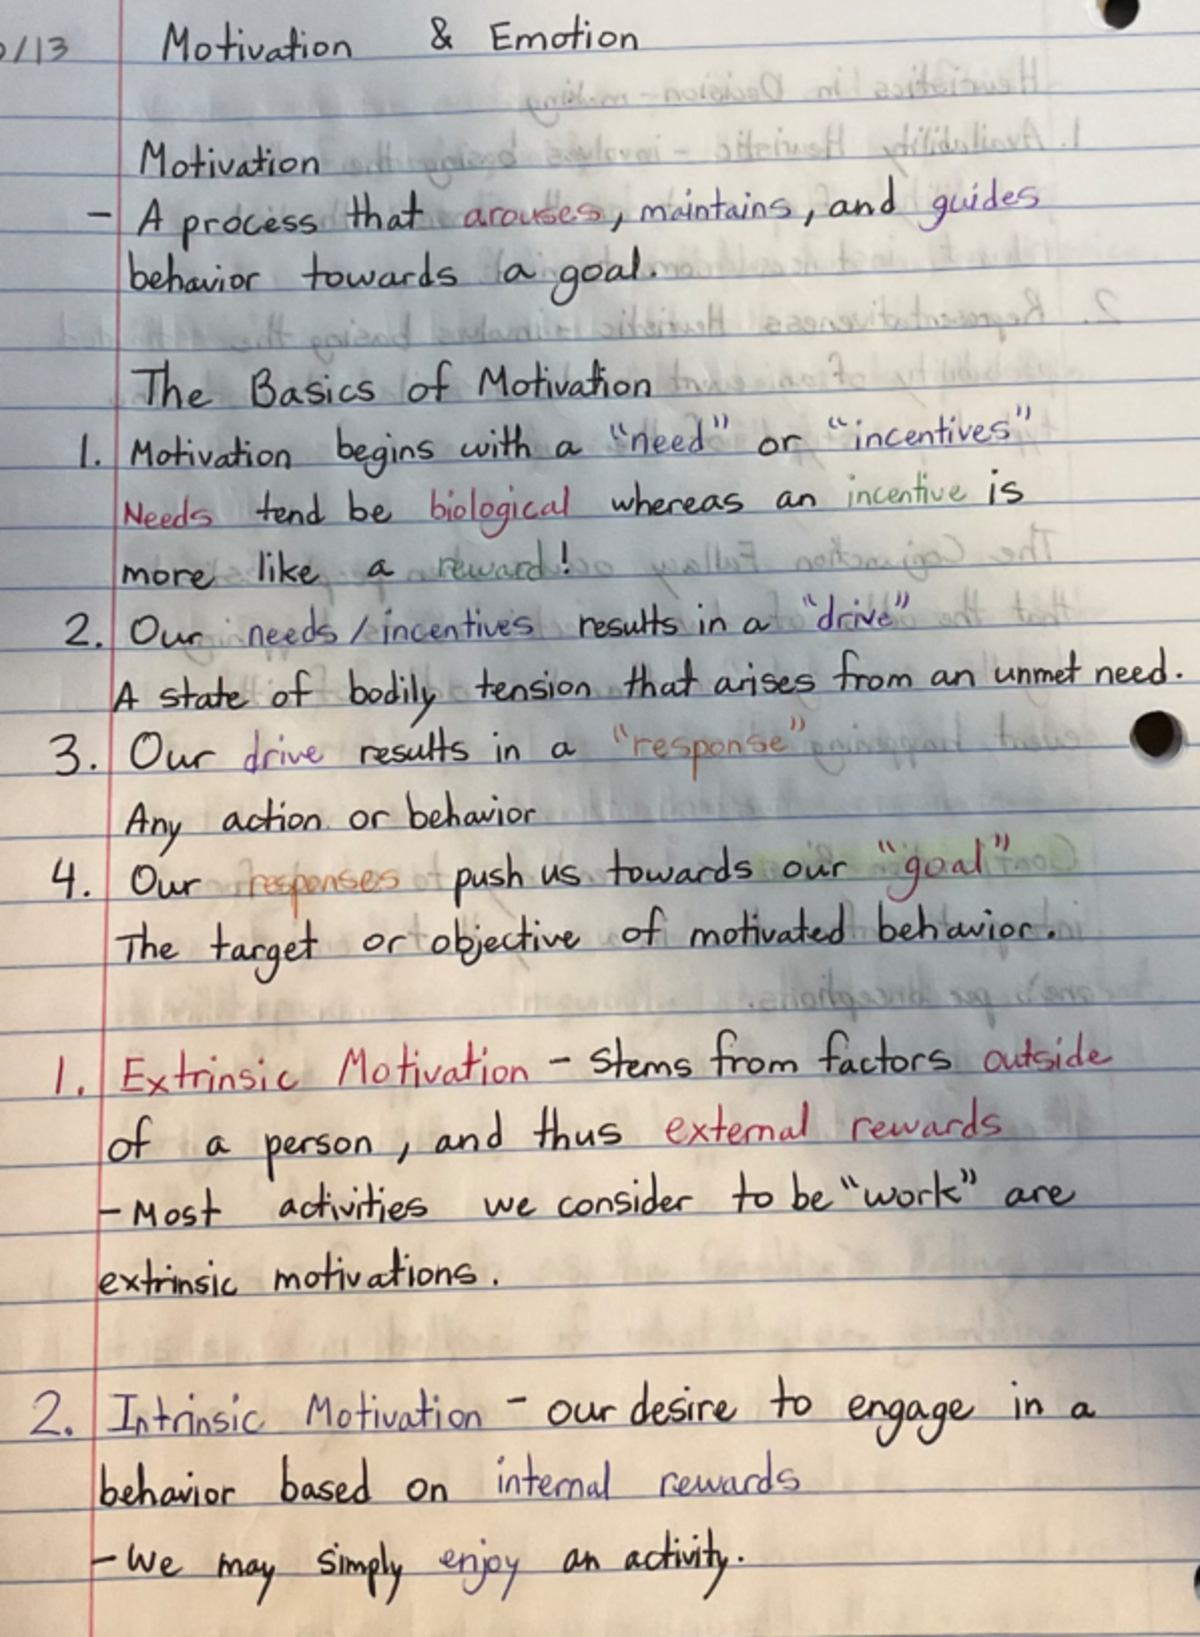 /13 Motivation & Emotion
Motivation
- A process that arouses, maintains, and guides
behavior towards a goal.
The Basics of Motivation
1. Motivation begins with a "need" or "incentives"
Needs tend be biological whereas an incentive is
more like a reward!
2. Our needs/incentives results in a "drive"
A state of bodily tension that arises from an unmet need.
3. Our drive results in a "response"
Any action or behavior
4. Our responses push us towards our "goal"
The target or objective of motivated behavior.
1. Extrinsic Motivation - Stems from factors outside
of a person, and thus external rewards
- Most activities we consider to be "work" are
extrinsic motivations.
2. Intrinsic Motivation - our desire to engage in a
behavior based on internal rewards
- We may simply enjoy an activity.